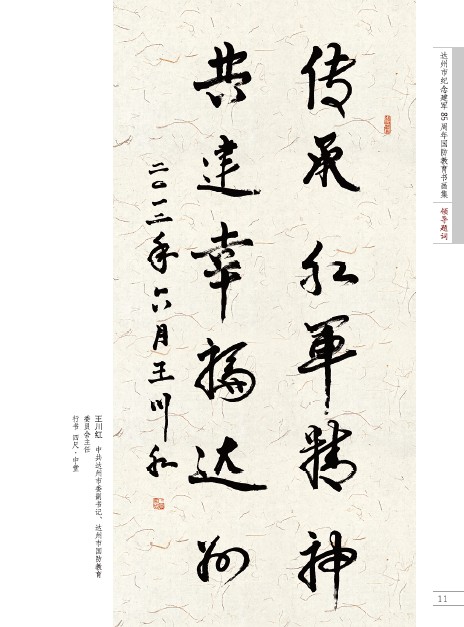 达州市纪念建军85周年国防教育书画集
领导题词
传承红军精神
共建幸福达州
二〇一二年六月王川红
王川红 中共达州市委副书记、达州市国防教育
委员会主任
行书 四尺·中堂
11